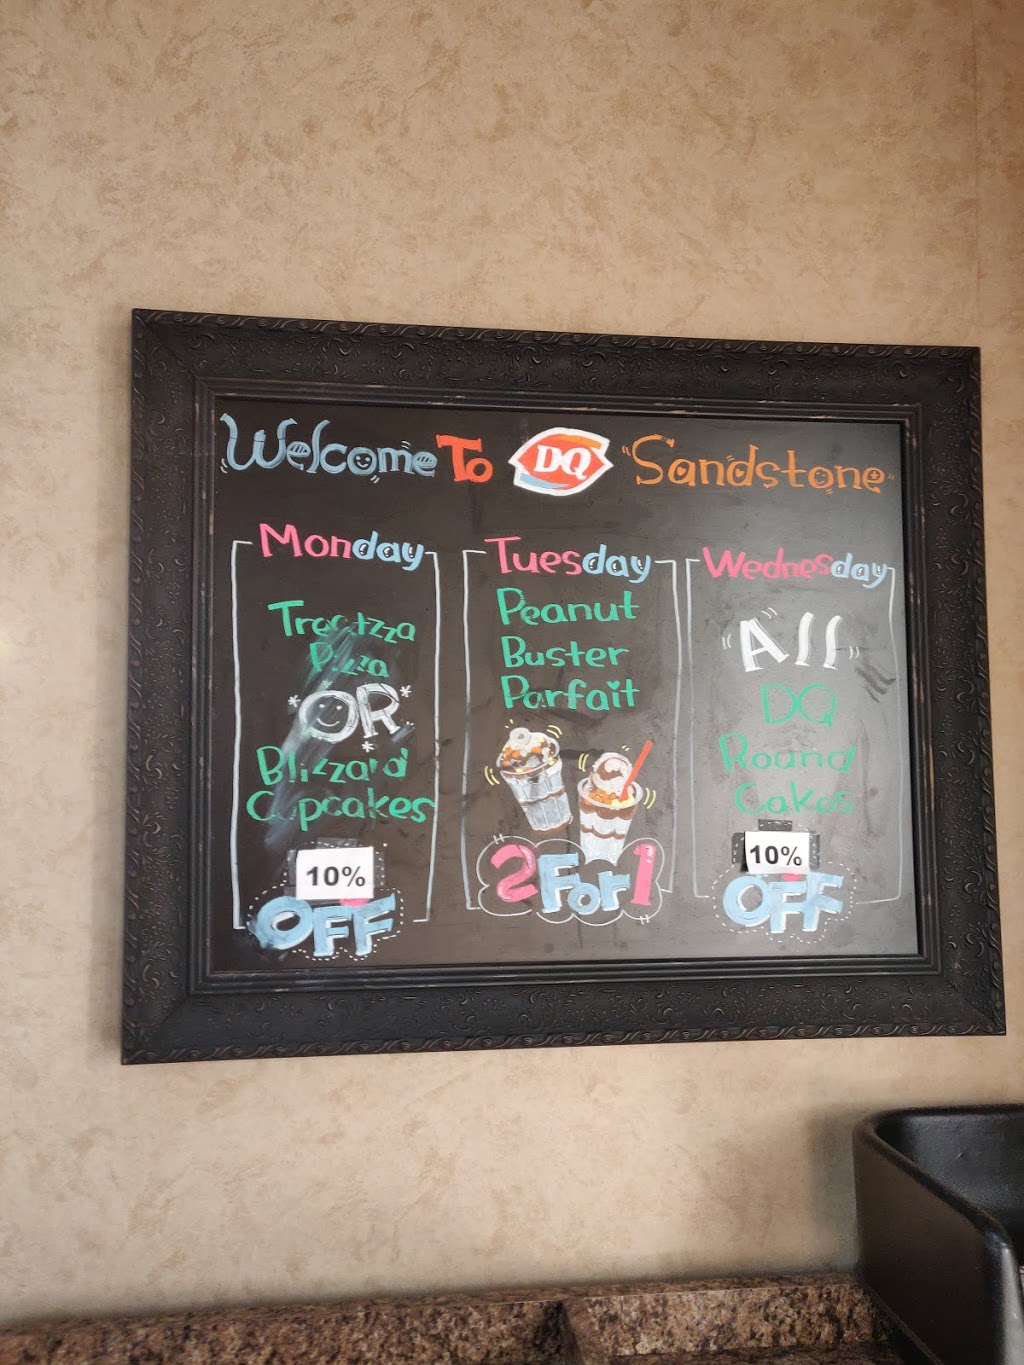 Welcome To DQ "Sandstone"
Monday
Treatzza
Pizza
*OR*
Blizzard
Cupcakes
10%
OFF
Tuesday
Peanut
Buster
Parfait
2 For 1
Wednesday
All
DQ
Round
Cakes
10%
OFF